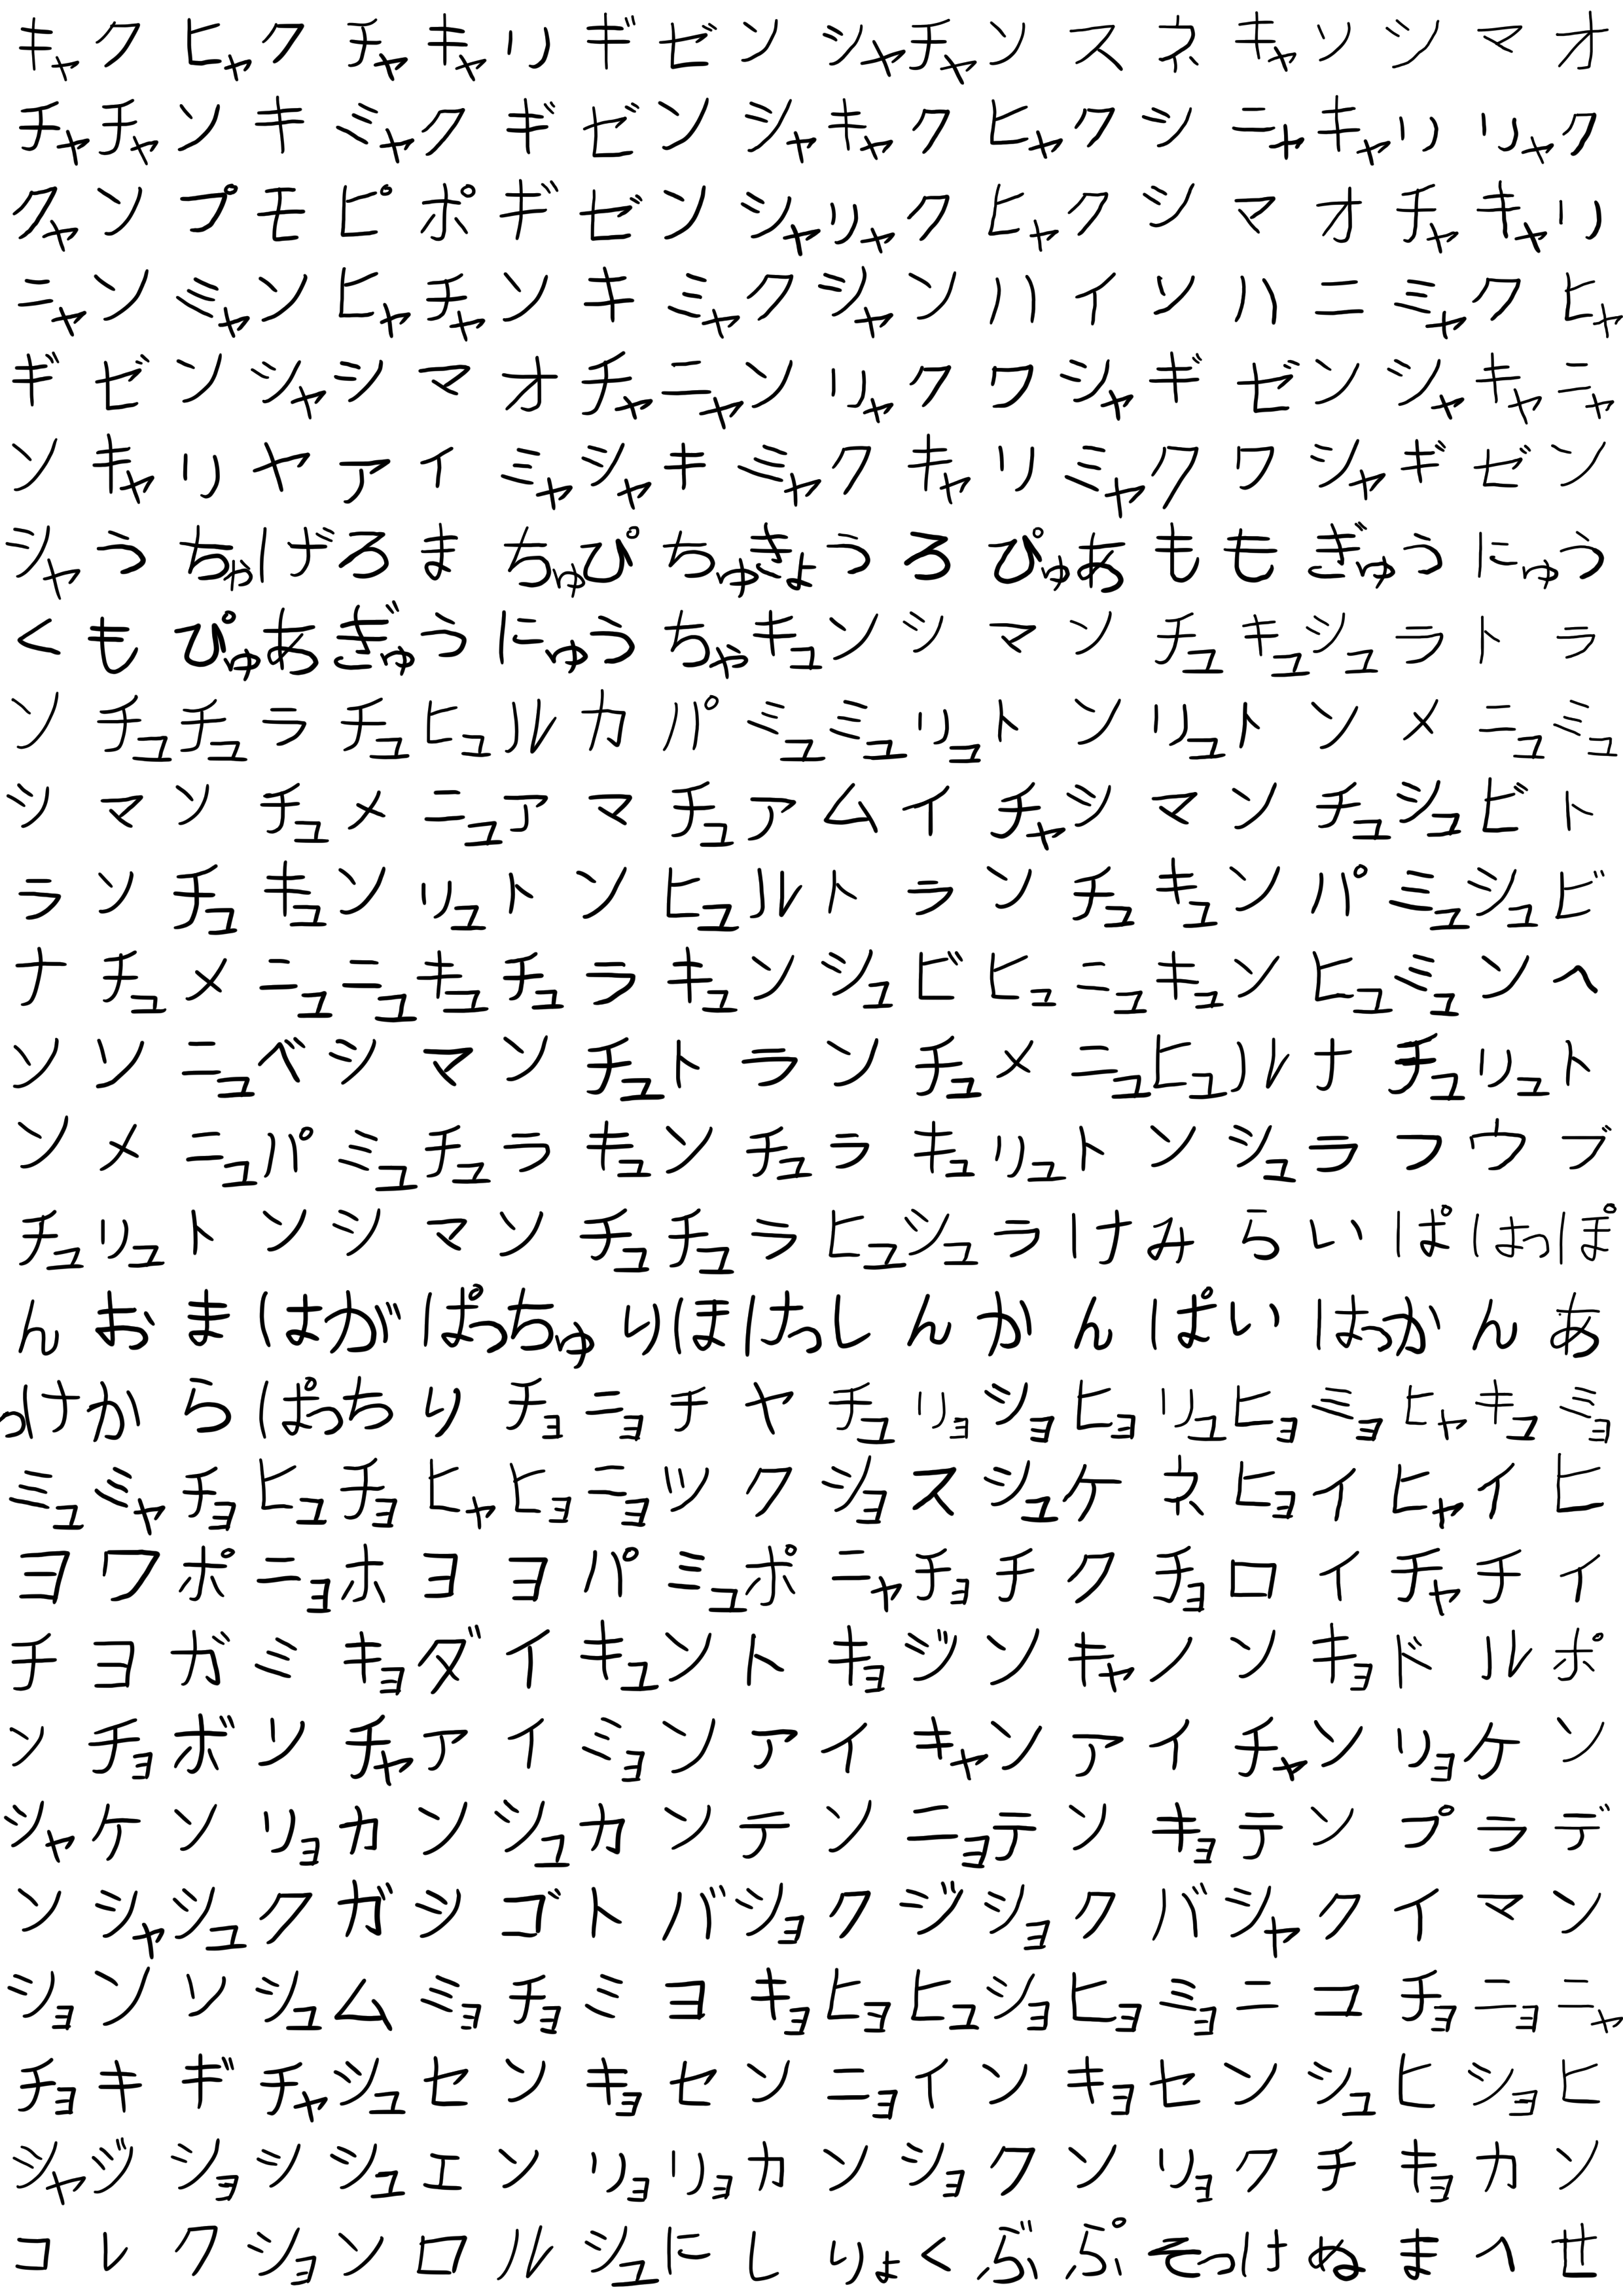 キャクヒャクチャキャリギゼンシャチャンスネキャンシマオ
チャチャンキミャクギゼンシャキャクヒャクシニャキャリリャク
クャンプモピポギゼンシャリャクヒャクジマオチャキャリ
ニャンミャンヒャチャンキミャクジャンハインハニミャクヒャ
ギゼンシャシマオチャニャンリャクワシャギゼンシャキャニャ
ンキャリヤァイミャシャキミャクキャリミャクワシャギゼン
シャうちゅげろまちゅぴちゅきょうろぴゅあももぎゅうにゅう
くもぴゅあぎゅうにゅうちゃキュンジマンチュキュシュラトラ
ンチュチュラチュヒュルカパミュミュリュトンリュトンメニュミュ
シマンチュメニュアマチュアムイチャジマンチュシュビト
ランチュキュンリュトンヒュルトランチュキュンパミュシュビ
ナチュメニュニュキュチュラキュンシュビヒュニュキュンヒュミュンヘ
ンソニュベジマンチュトランチュメニュヒュルナチュリュト
ンメニュパミュチュラキュンチュラキュリュトンシュラフウブ
チュリュトンジマンチュチュラヒュシュラけみらいぱはっぽ
んおまはがぱっちゅりほけっしんかんぱいはっかんあ
っけからぱっちりチョニョチヤチュリョショヒョリュヒョミョヒャキュミョ
ミュミャチョヒュチョヒャヒョニョックショスシュケネヒョイヒャイヒ
ヨワポニョホヨヨパミュポニャチョチクチョロイチャチイ
チヨガミキョダイキュントキョジンキャノンキョドルポ
ンチョボソチャアイミョンアイキャンアイチャンリョケン
ジャケンリョカンシュカンテンニョテンキョテンプラデ
ンシャシュクガシゴトバショクジショクバシャクイマン
ションソジュムミョチョミヨキョヒョヒュショヒョミョニコチョニョニャ
チョキギチャジュセンキョセンニョインキョセンシュヒショヒ
シャジショシシュエンリョリョカンショクンリョクチキョカン
コレクションロルシュにしりょくぶぷそっけぬまへせ